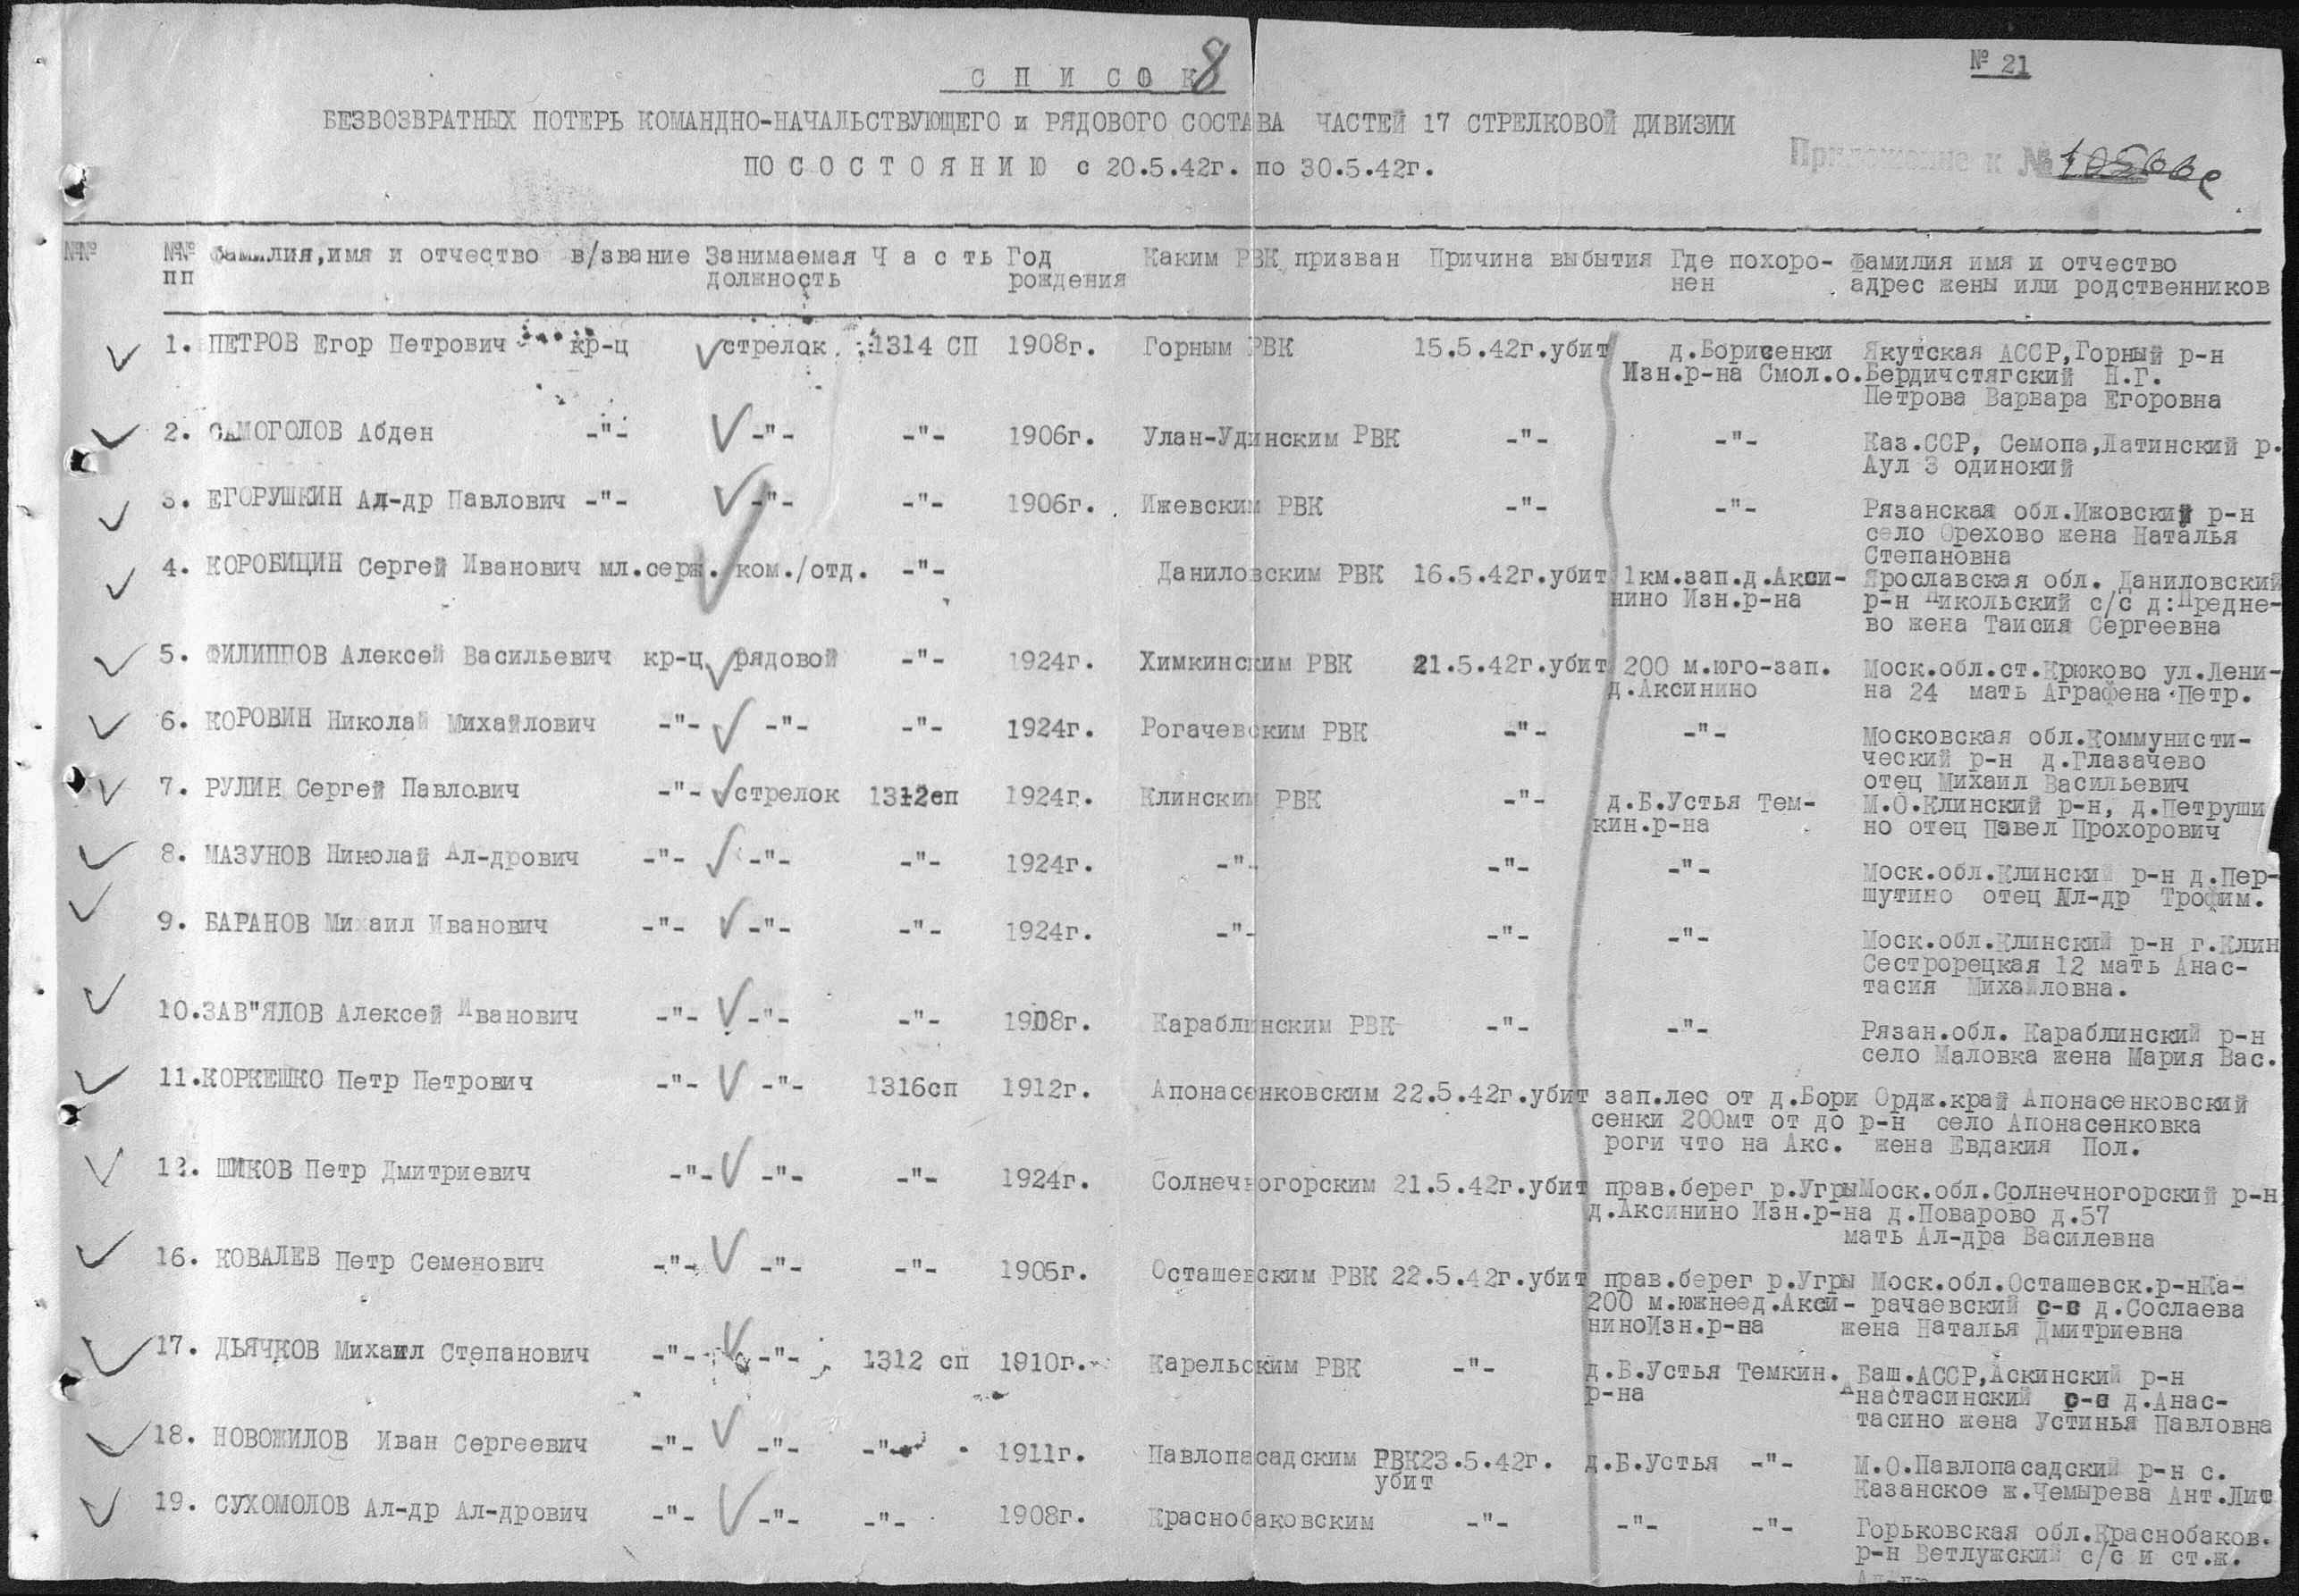 № 21
С П И С О К
8
БЕЗВОЗВРАТНЫХ ПОТЕРЬ КОМАНДНО-НАЧАЛЬСТВУЮЩЕГО и РЯДОВОГО СОСТАВА ЧАСТЕЙ 17 СТРЕЛКОВОЙ ДИВИЗИИ
ПО С О С Т О Я Н И Ю с 20.5.42г. по 30.5.42г.
Приложение к №
№№ №№ Фамилия,имя и отчество в/звание Занимаемая Ч а с т ь Год Каким РВК призван Причина выбытия Где похоро- Фамилия имя и отчество
пп должность рождения нен адрес жены или родственников
1. ПЕТРОВ Егор Петрович кр-ц стрелок 1314 СП 1908г. Горным РВК 15.5.42г.убит д.Борисенки Якутская АССР,Горный р-н
Изн.р-на Смол.о. Бердичстягский Н.Г.
Петрова Варвара Егоровна
2. САМОГОЛОВ Абден -"- -"- -"- 1906г. Улан-Удинским РВК -"- -"- Каз.ССР, Семопа,Латинский р.
Аул 3 одинокий
3. ЕГОРУШКИН Ал-др Павлович -"- -"- -"- 1906г. Ижевским РВК -"- -"- Рязанская обл.Ижовский р-н
село Орехово жена Наталья
Степановна
4. КОРОБИЦИН Сергей Иванович мл.серж. ком./отд. -"- Даниловским РВК 16.5.42г.убит 1км.зап.д.Акси- Ярославская обл. Даниловский
нино Изн.р-на р-н Никольский с/с д:Предне-
во жена Таисия Сергеевна
5. ФИЛИППОВ Алексей Васильевич кр-ц рядовой -"- 1924г. Химкинским РВК 21.5.42г.убит 200 м.юго-зап. Моск.обл.ст.Крюково ул.Лени-
д.Аксинино на 24 мать Аграфена Петр.
6. КОРОВИН Николай Михайлович -"- -"- -"- 1924г. Рогачевским РВК -"- -"- Московская обл.Коммунисти-
ческий р-н д.Глазачево
отец Михаил Васильевич
7. РУЛИН Сергей Павлович -"- стрелок 1312сп 1924г. Клинским РВК -"- д.Б.Устья Тем- М.О.Клинский р-н, д.Петруши
кин.р-на но отец Павел Прохорович
8. МАЗУНОВ Николай Ал-дрович -"- -"- -"- 1924г. -"- -"- -"- Моск.обл.Клинский р-н д.Пер-
шутино отец Ал-др Трофим.
9. БАРАНОВ Михаил Иванович -"- -"- -"- 1924г. -"- -"- -"- Моск.обл.Клинский р-н г.Клин
Сестрорецкая 12 мать Анас-
тасия Михайловна.
10.ЗАВ"ЯЛОВ Алексей Иванович -"- -"- -"- 1908г. Караблинским РВК -"- -"- Рязан.обл. Караблинский р-н
село Маловка жена Мария Вас.
11.КОРКЕШКО Петр Петрович -"- -"- 1316сп 1912г. Апонасенковским 22.5.42г.убит зап.лес от д.Бори Ордж.край Апонасенковский
сенки 200мт от до р-н село Апонасенковка
роги что на Акс. жена Евдакия Пол.
12. ШИКОВ Петр Дмитриевич -"- -"- -"- 1924г. Солнечногорским 21.5.42г.убит прав.берег р.Угры Моск.обл.Солнечногорский р-н
д.Аксинино Изн.р-на д.Поварово д.57
мать Ал-дра Василевна
16. КОВАЛЕВ Петр Семенович -"- -"- -"- 1905г. Осташевским РВК 22.5.42г.убит прав.берег р.Угры Моск.обл.Осташевск.р-нКа-
200 м.южнеед.Акси- рачаевский с-с д.Сослаева
ниноИзн.р-на жена Наталья Дмитриевна
17. ДЬЯЧКОВ Михаил Степанович -"- -"- 1312 сп 1910г. Карельским РВК -"- д.Б.Устья Темкин. Баш.АССР,Аскинский р-н
р-на Анастасинский с-с д.Анас-
тасино жена Устинья Павловна
18. НОВОЖИЛОВ Иван Сергеевич -"- -"- -"- 1911г. Павлопасадским РВК23.5.42г. д.Б.Устья -"- М.О.Павлопасадский р-н с.
убит Казанское ж.Чемырева Ант.Лис
19. СУХОМОЛОВ Ал-др Ал-дрович -"- -"- -"- 1908г. Краснобаковским -"- -"- -"- Горьковская обл.Краснобаков.
р-н Ветлужский с/с и ст.ж.